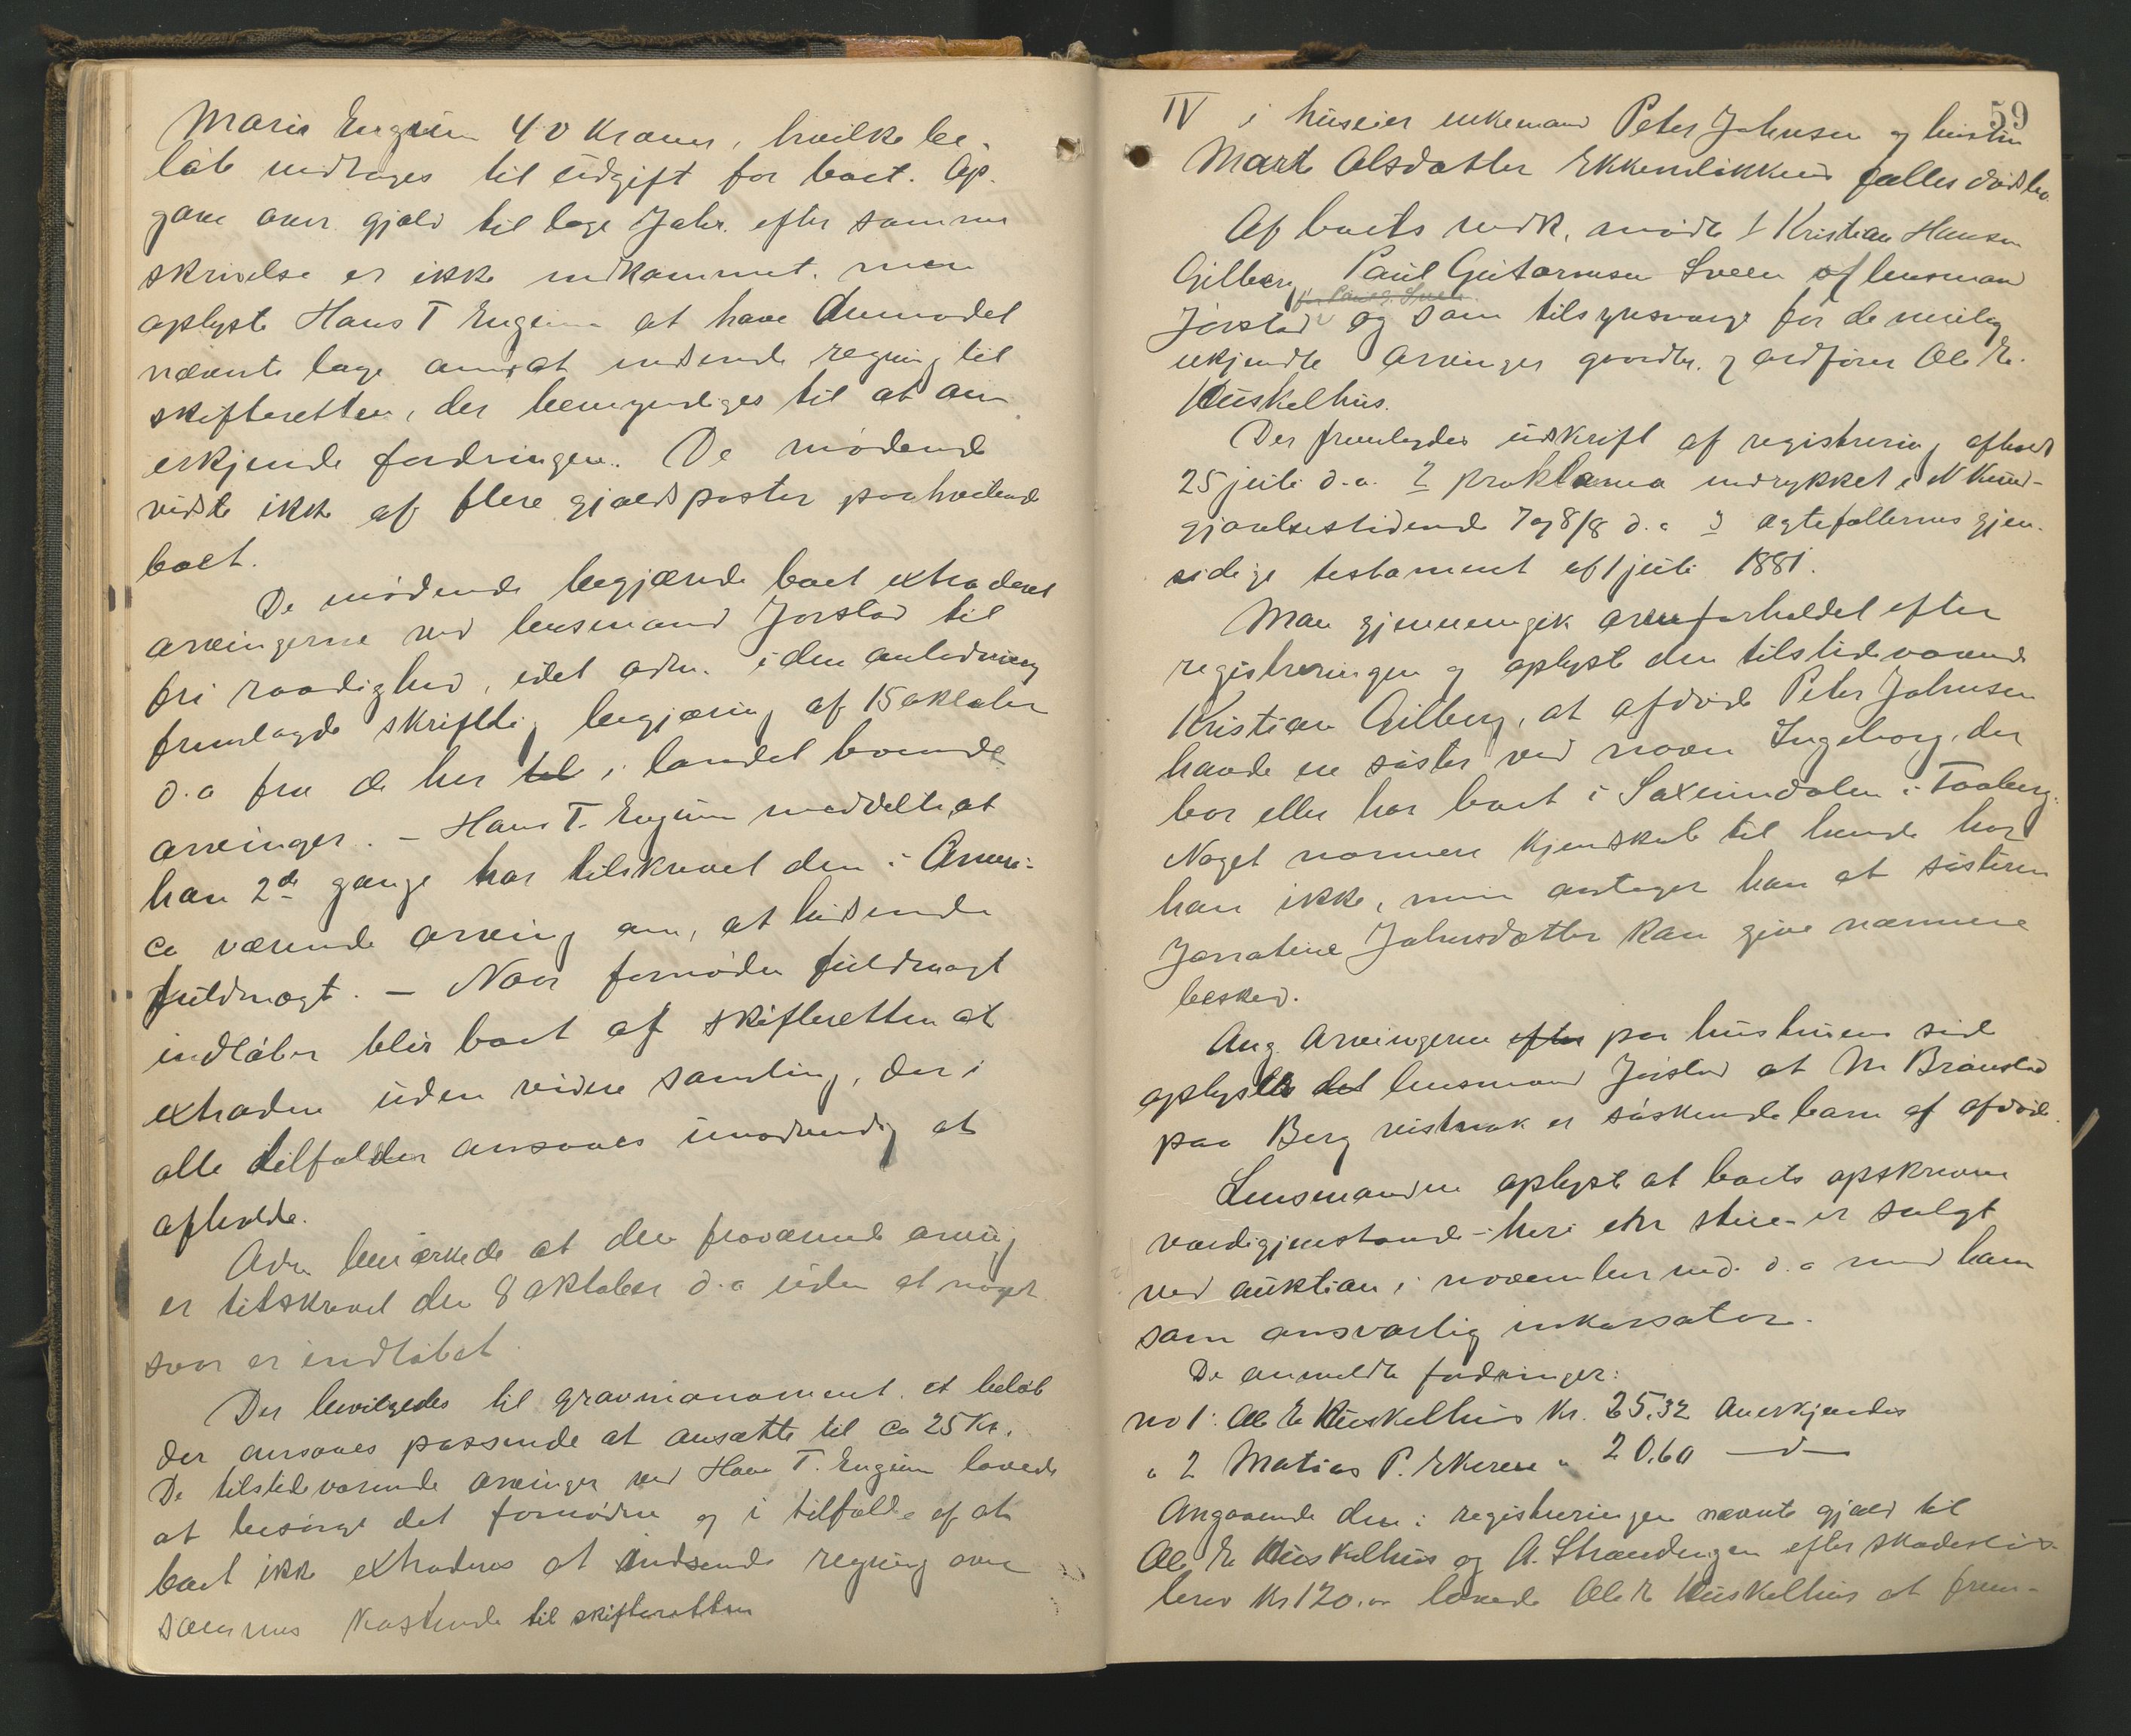 Maria Engum 40 Kroner, hvilke be-
løb medtages til udgift for boet. Op-
gave over gjæld til læge Jahr. efter samme
skrivelse er ikke indkommet. men
oplyste Hans T Engum at have anmodet
nævnte læge om at indsende regning til
skifteretten, der bemyndiges til at an
erkjende fordringen. De mødende
vidste ikke af flere gjældsposter paahvilende
boet.
De mødende begjærede boet extraderet
arvingerne ved lensmand Jørstad til
fri raadighed, idet adm. i den anledning
fremlagde skriftlig begjæring af 15 oktober
d.a fra de her til i landet boende
arvinger. - Hans T. Engum meddelte, at
han 2de gange har tilskrevet den i Ameri-
ca værende arving om, at hidsende
fuldmagt. - Naar fornøden fuldmagt
indløber blir boet af skifteretten at
extradere uden videre samling, der i
alle tilfælder ansaaes unødvendig at
afholde.
Adm bemærkede at den fraværende arving
er tilskrevet den 8 oktober d.a uden at noget
svar er indløbet.
Der bevilgedes til gravmonoment et beløb
der ansaaes passende at ansætte til ca 25 Kr.
De tilstedeværende arvinger ved Hans T. Engum lovede
at besørge det fornødne og i tilfælde af at
boet ikke extraderes at indsende regning over
sammes kostende til skifteretten
59
IV i huseier enkemand Peter Johnsen og hustru
Marte Olsdatter Ekkernløkkens fælles dødsbo.
Af boets vedk. mødte Kristian Hansen
Gilberg, Paul Guttormsen Sveen af lensmand
for Paul G. Sveen
Jørstad og som tilsynsværge for de mulig
ukjendte arvinger gaardbr. og ordfører Ole E.
Kuskelhus.
Der fremlagdes udskrift af registrering afholdt
25 juli d.a. 2 proklama indrykket i N Kund-
gjørelsestidende 7 og 8/8 d.a 3 ægtefællernes gjen-
sidige testament af 1 juli 1881.
Man gjennemgik arveforholdet efter
registreringen og oplyste den tilstedeværende
Kristian Gilberg, at afdøde Peter Johnsen
havde en søster ved navn Ingeborg, der
bor eller har boet i Saxumdalen i Faaberg.
Noget nærmere kjendskab til hende har
han ikke, men antager han at søsteren
Jonatene Johnsdatter kan give nærmere
besked.
Ang. Arvingerne efter paa hustruens side
oplyste det lensmand Jørstad at M. Brændstad
paa Berg vistnok er søskendebarn af afdøde.
Lensmanden oplyste at boets opskrevne
værdigjenstande - heri etr stue - er solgt
ved auktion i november md. d.a med ham
som ansvarlig inkassator.
De anmeldte fordringer:
no 1: Ole E Kuskelhus Kr. 25,32 Anerkjendes
" 2 Matias P. Ekeren " 20,60 -d-
Angaaende den i registreringen nævnte gjæld til
Ole E Kuskelhus og A. Strandengen efter skadesløs-
brev Kr 120.00 lovede Ole E Kuskelhus at frem-